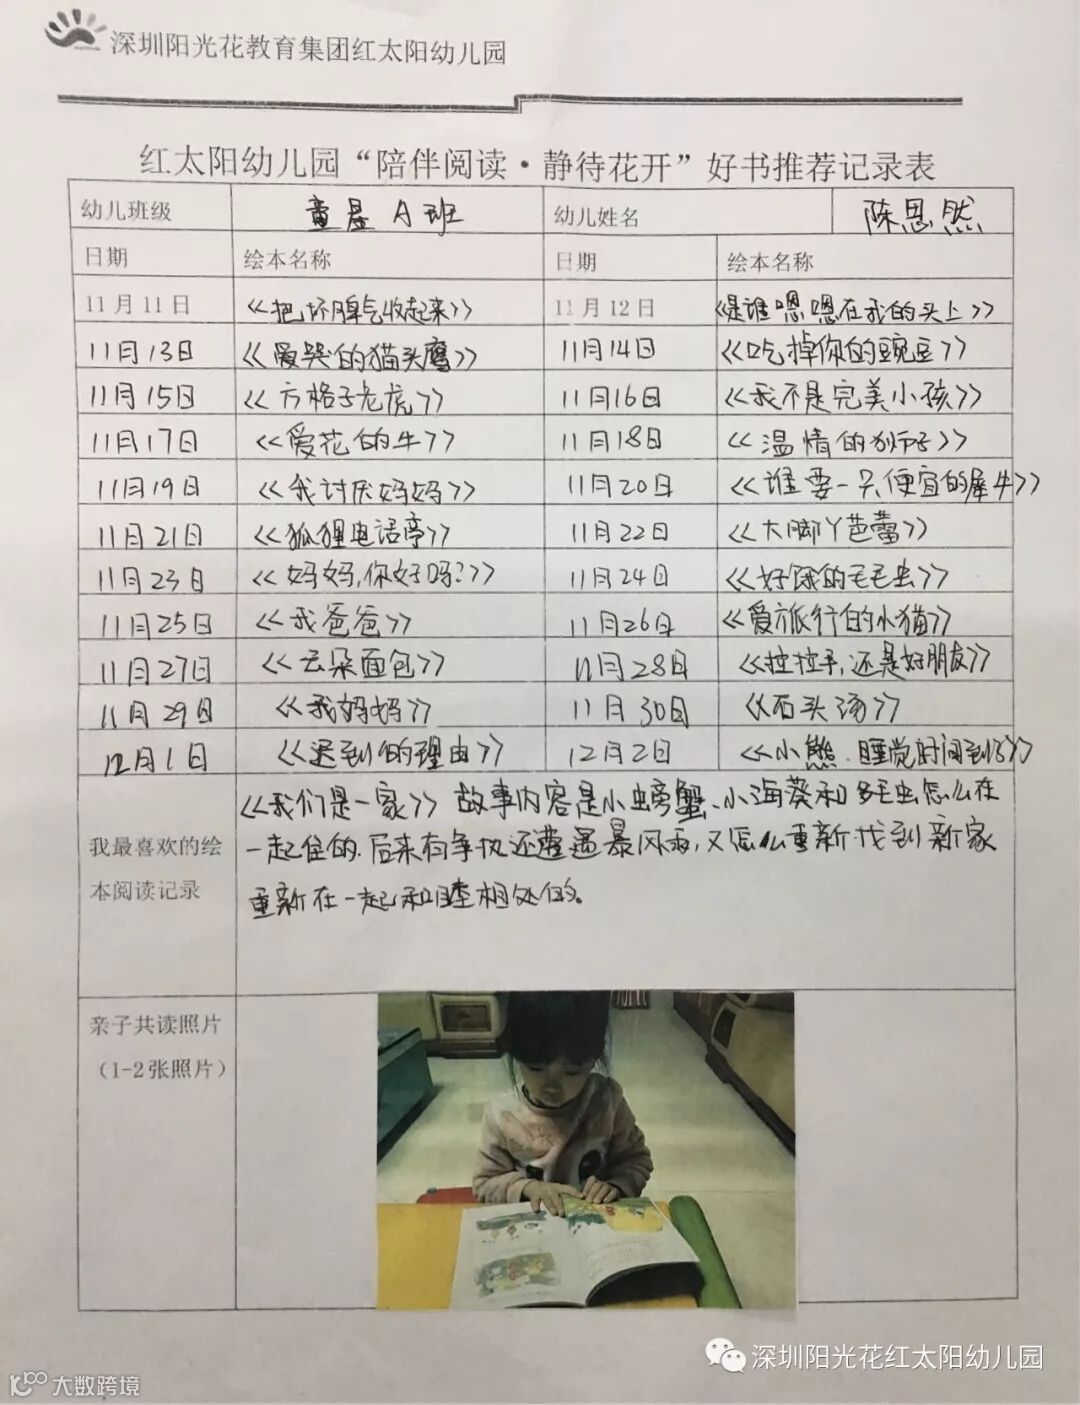 深圳阳光花教育集团红太阳幼儿园
红太阳幼儿园“陪伴阅读·静待花开”好书推荐记录表
幼儿班级 童星A班 幼儿姓名 陈思然
日期 绘本名称 日期 绘本名称
11月11日 《把坏脾气收起来》 11月12日 《是谁嗯嗯在我的头上》
11月13日 《爱哭的猫头鹰》 11月14日 《吃掉你的豌豆》
11月15日 《方格子老虎》 11月16日 《我不是完美小孩》
11月17日 《爱花的牛》 11月18日 《温情的狮子》
11月19日 《我讨厌妈妈》 11月20日 《谁要一只便宜的犀牛》
11月21日 《狐狸电话亭》 11月22日 《大脚丫芭蕾》
11月23日 《妈妈,你好吗?》 11月24日 《好饿的毛毛虫》
11月25日 《我爸爸》 11月26日 《爱旅行的小猫》
11月27日 《云朵面包》 11月28日 《拉拉手,还是好朋友》
11月29日 《我妈妈》 11月30日 《石头汤》
12月1日 《迟到的理由》 12月2日 《小熊.睡觉时间到了》
我最喜欢的绘
本阅读记录
《我们是一家》故事内容是小螃蟹、小海葵和多毛虫怎么在
一起住的.后来有争执还遭遇暴风雨,又怎么重新找到新家
重新在一起和睦相处的。
亲子共读照片
（1-2张照片）
深圳阳光花红太阳幼儿园
大数跨境